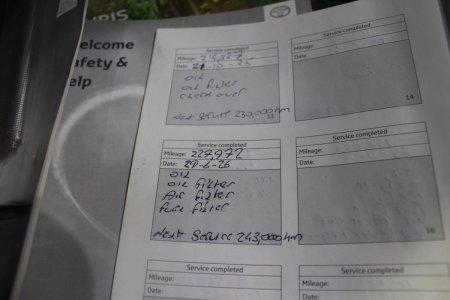 URIS
elcome
afety &
elp
Service completed
Mileage:
Date: 21-10-25
OIL
OIL filter
check over
Next Service 230,000km
13
Mileage:
Date:
14
Service completed
Mileage: 227,972
Date: 29-6-26
OIL
OIL filter
Air filter
fuel filter
Next Service 243,000km
Service completed
Mileage:
Date:
16
Service completed
Mileage:
Date:
Service completed
Mileage:
Date: